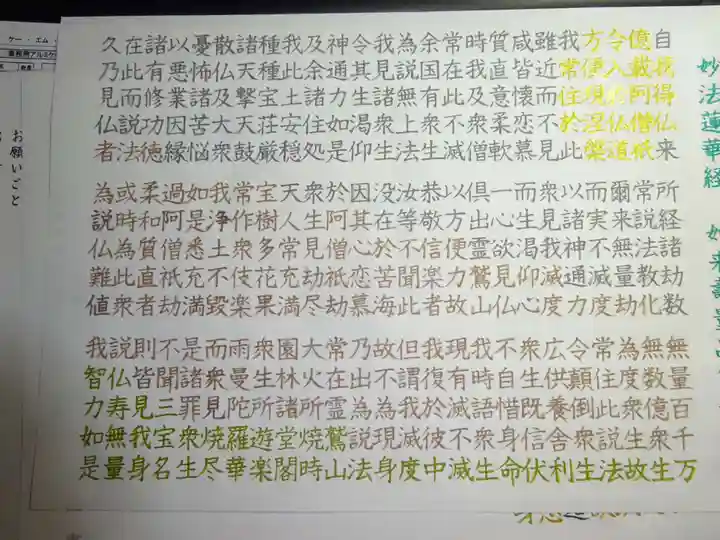 妙法蓮華経 如来壽量品
自我得仏来 所経諸劫数 無量百千万
億載阿僧祇 常説法教化 無数億衆生
令入於仏道 爾来無量劫 為度衆生故
方便現涅槃 而実不滅度 常住此説法
我常住於此 以諸神通力 令顛倒衆生
雖近而不見 衆見我滅度 広供養舎利
咸皆懐恋慕 而生渇仰心 衆生既信伏
質直意柔軟 一心欲見仏 不自惜身命
時我及衆僧 倶出霊鷲山 我時語衆生
常在此不滅 以方便力故 現有滅不滅
余国有衆生 恭敬信楽者 我復於彼中
為説無上法 汝等不聞此 但謂我滅度
我見諸衆生 没在於苦海 故不為現身
令其生渇仰 因其心恋慕 乃出為説法
神通力如是 於阿僧祇劫 常在霊鷲山
及余諸住処 衆生見劫尽 大火所焼時
我此土安穏 天人常充満 園林諸堂閣
種種宝荘厳 宝樹多花果 衆生所遊楽
諸天撃天鼓 常作衆伎楽 雨曼陀羅華
散仏及大衆 我浄土不毀 而衆見焼尽
憂怖諸苦悩 如是悉充満 是諸罪衆生
以悪業因縁 過阿僧祇劫 不聞三宝名
諸有修功徳 柔和質直者 則皆見我身
在此而説法 或時為此衆 説仏寿無量
久乃見仏者 為説仏難値 我智力如是
ケー・エム・
業務用アルミケ
お願いごと